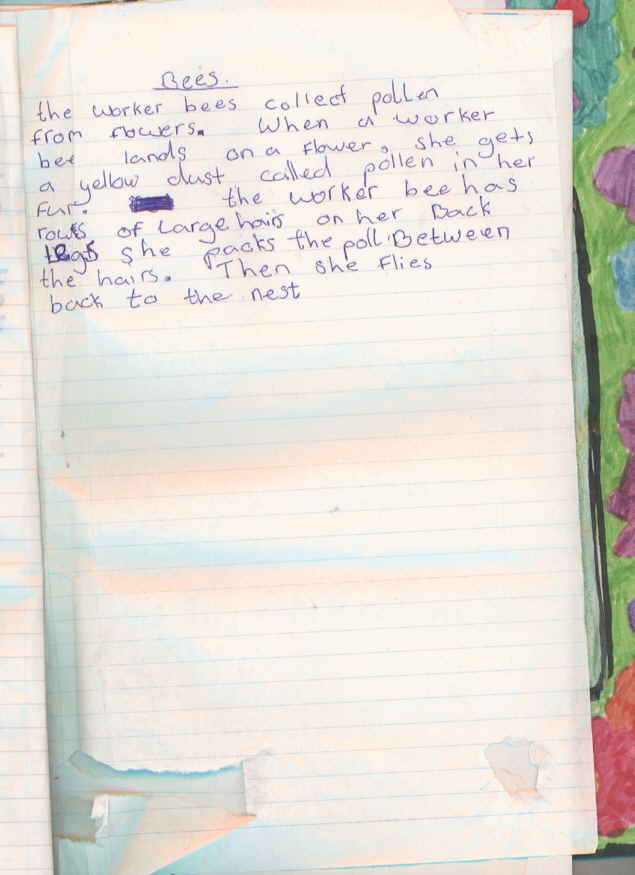 Bees.
the worker bees collect pollen
from flowers. When a worker
bee lands on a flower, she gets
a yellow dust called pollen in her
fur. the worker bee has
rows of Large hairs on her Back
legs she packs the poll Between
the hairs. Then she flies
back to the nest